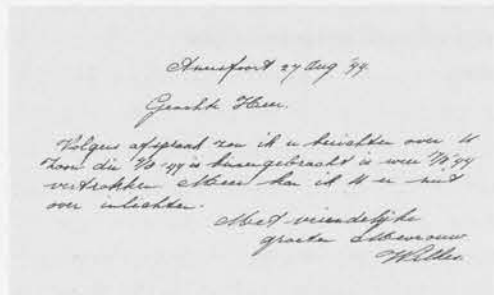 Amersfoort 27 Aug '44.
Geachte Heer.
Volgens afspraak zou ik u berichten over U
Zoon die '44 is binnengebracht is weer '44
vertrokken Meer kan ik U er niet
over inlichten.
Met vriendelijke
groeten Mevrouw